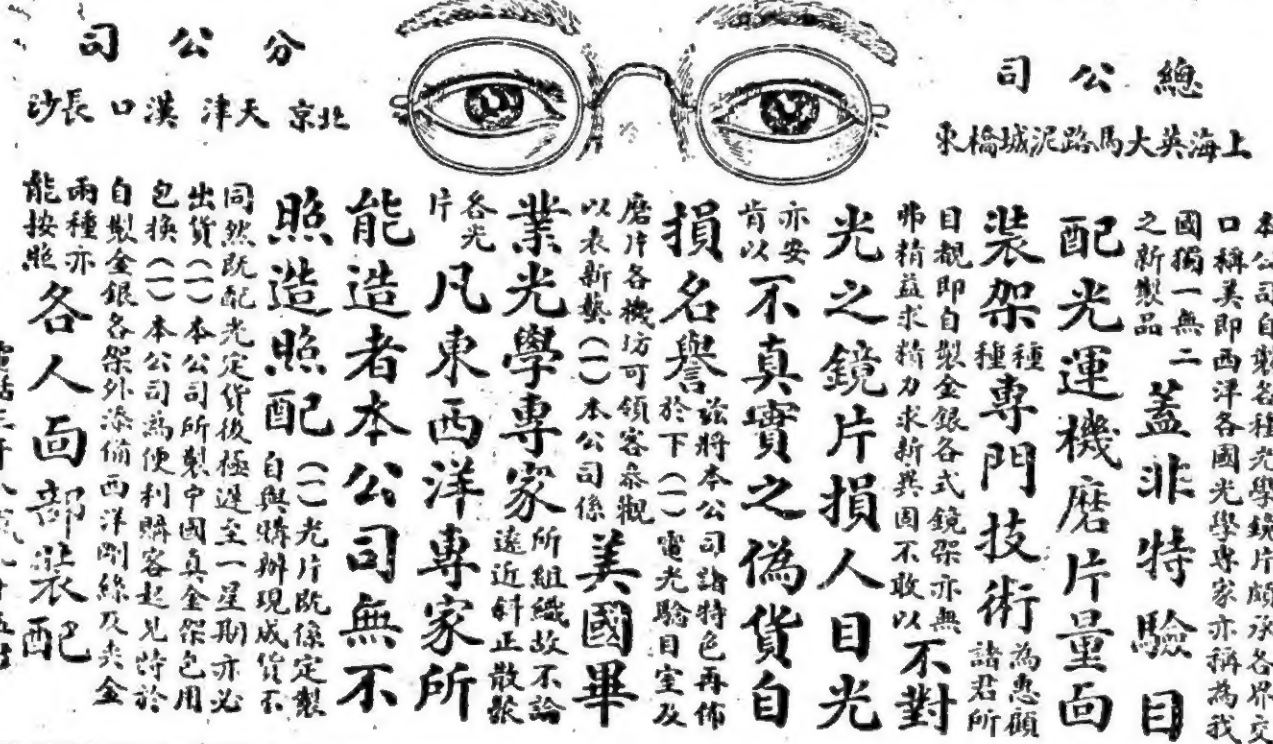 總公司
上海英大馬路泥城橋東
分公司
北京 天津 漢口 長沙
本公司自製各種光學鏡片頗承各界交
口稱美即西洋各國光學專家亦稱為我
國獨一無二
之新製品
蓋非特驗目
配光運機磨片量面
裝架
種種
專門技術
為惠顧
諸君所
目覩即自製金銀各式鏡架亦無
弗精益求精力求新異固不敢以
不對
光之鏡片損人目光
亦安
肯以
不真實之偽貨自
損名譽
茲將本公司諸特色再佈
於下(一)電光驗目室及
磨片各機坊可領客叅觀
以表新藝(一)本公司係
美國畢
業光學專家
所組織故不論
遠近斜正散
各光
片
凡東西洋專家所
能造者本公司無不
照造照配
(一)光片既係定製
自與購辦現成貨不
同然既配光定貨後極遲至一星期亦必
出貨(一)本公司所製中國真金架包用
包換(一)本公司為便利購客起見特於
自製金銀各架外添備西洋剛絲及夾金
兩種亦
能按照
各人面部裝配